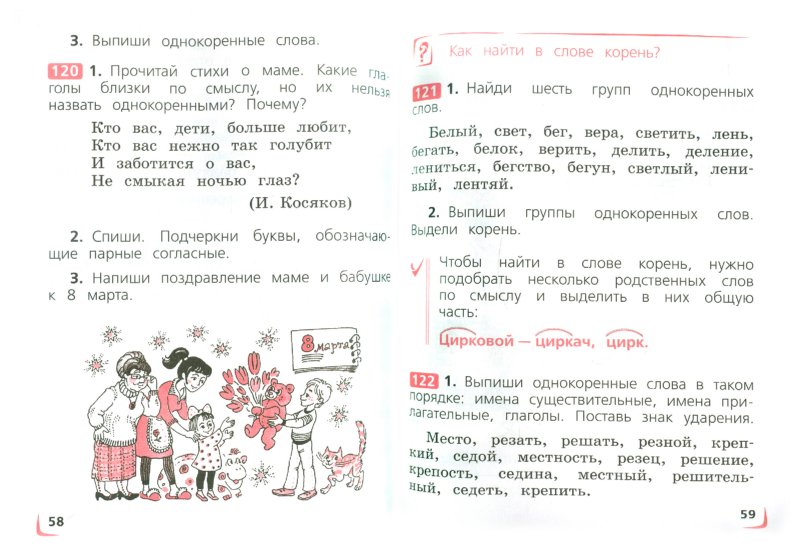 3. Выпиши однокоренные слова.
120 1. Прочитай стихи о маме. Какие гла-
голы близки по смыслу, но их нельзя
назвать однокоренными? Почему?
Кто вас, дети, больше любит,
Кто вас нежно так голубит
И заботится о вас,
Не смыкая ночью глаз?
(И. Косяков)
2. Спиши. Подчеркни буквы, обозначаю-
щие парные согласные.
3. Напиши поздравление маме и бабушке
к 8 марта.
8 марта
58
? Как найти в слове корень?
121 1. Найди шесть групп однокоренных
слов.
Белый, свет, бег, вера, светить, лень,
бегать, белок, верить, делить, деление,
лениться, бегство, бегун, светлый, лени-
вый, лентяй.
2. Выпиши группы однокоренных слов.
Выдели корень.
Чтобы найти в слове корень, нужно
подобрать несколько родственных слов
по смыслу и выделить в них общую
часть:
Цирковой — циркач, цирк.
122 1. Выпиши однокоренные слова в таком
порядке: имена существительные, имена при-
лагательные, глаголы. Поставь знак ударения.
Место, резать, решать, резной, креп-
кий, седой, местность, резец, решение,
крепость, седина, местный, решитель-
ный, седеть, крепить.
59